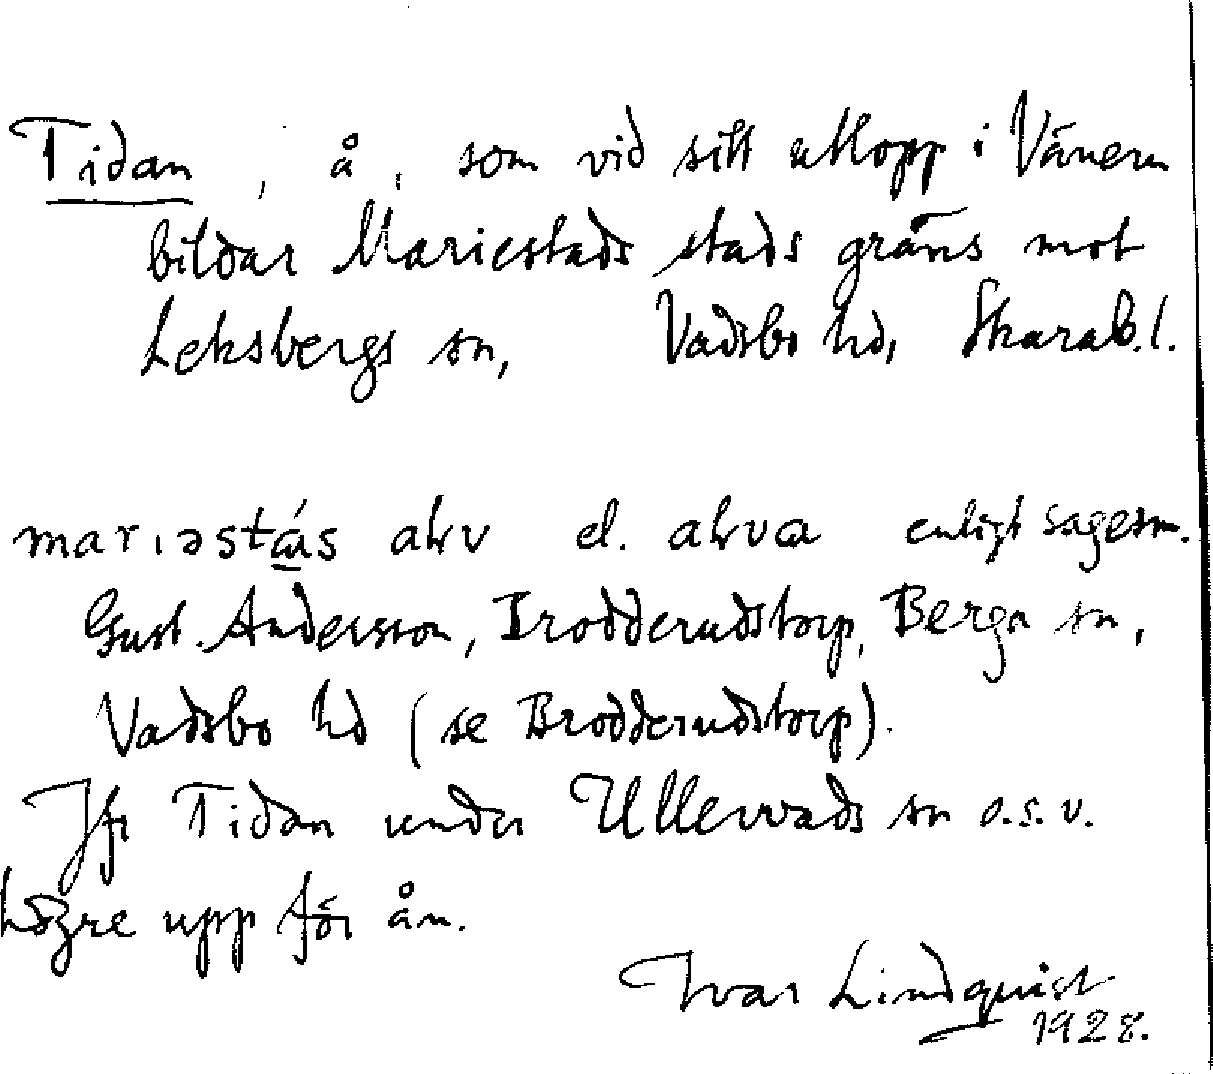 Tidan, å, som vid sitt utlopp i Vänern
bildar Mariestads stads gräns mot
Leksbergs sn, Vadsbo hd, Skarab.l.
mariəstás akv el. akva enligt sagesm.
Gust. Andersson, Brodderudstorp, Berga sn,
Vadsbo hd (se Brodderudstorp).
Jfr Tidan under Ullervads sn o.s.v.
högre upp för ån.
Ivar Lindquist
1928.